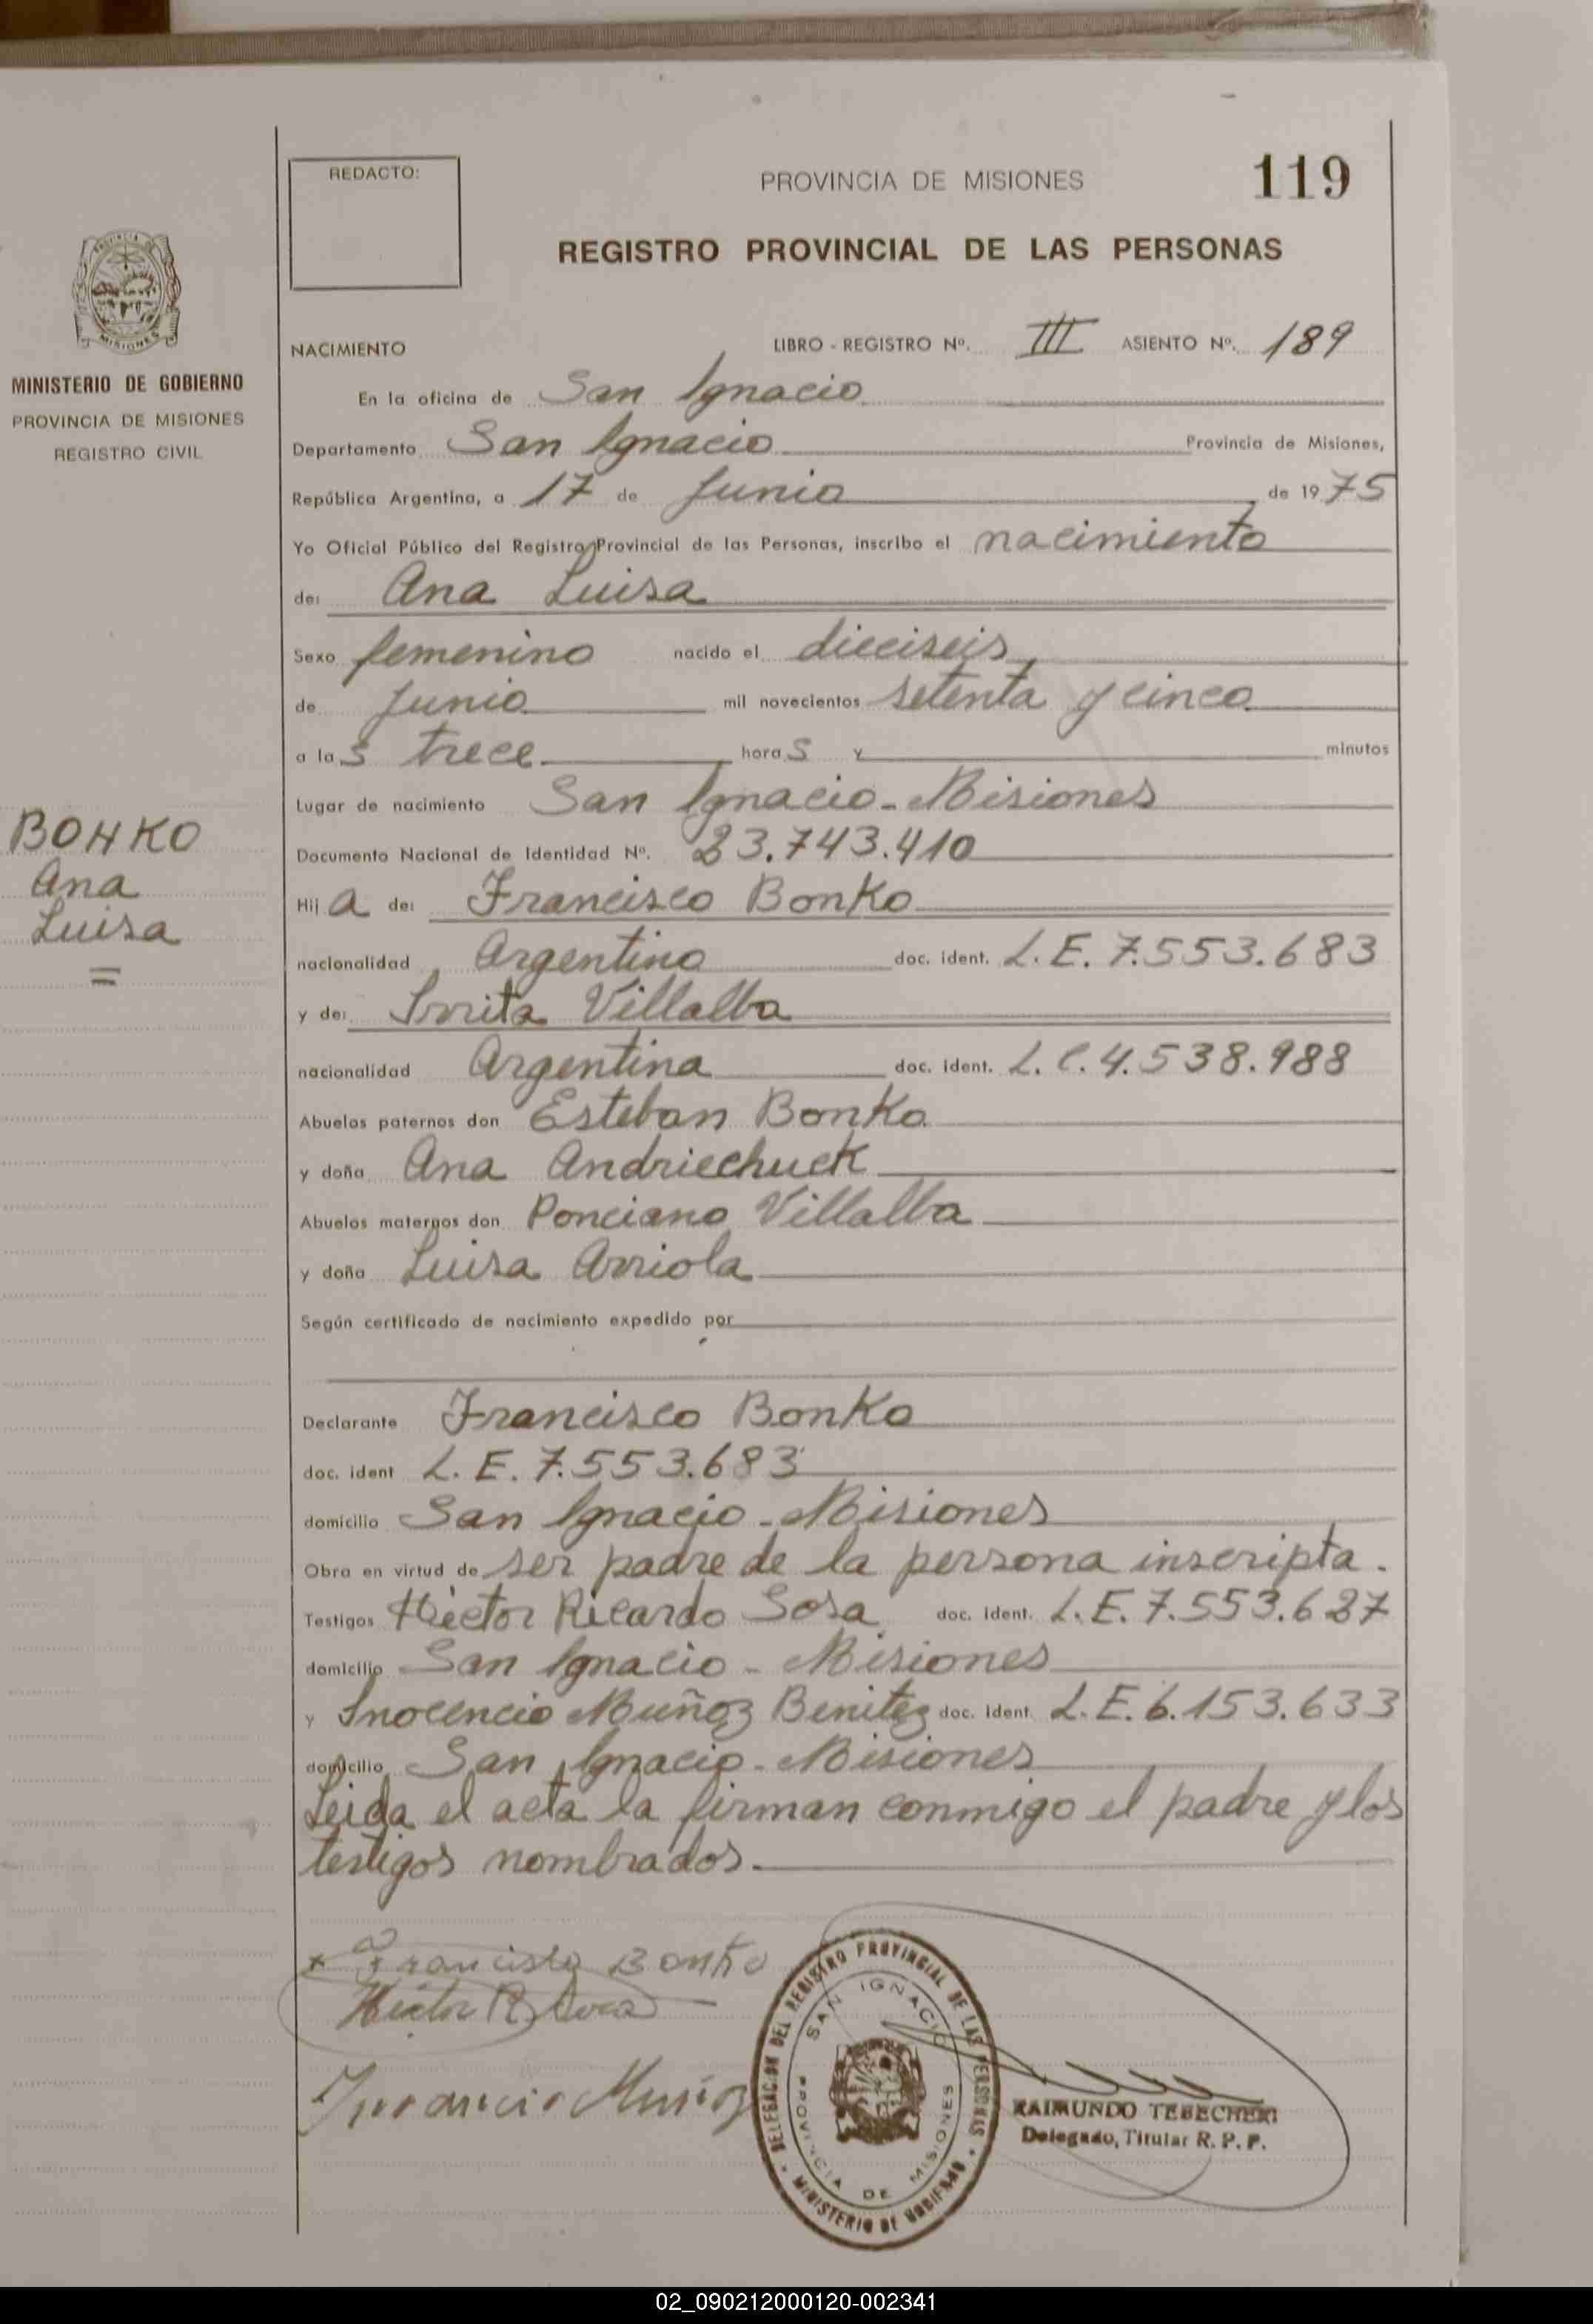 REDACTO:
PROVINCIA DE MISIONES
119
REGISTRO PROVINCIAL DE LAS PERSONAS
MISIONES
MINISTERIO DE GOBIERNO
PROVINCIA DE MISIONES
REGISTRO CIVIL
NACIMIENTO LIBRO - REGISTRO Nº. III ASIENTO Nº. 189
En la oficina de San Ignacio
Departamento San Ignacio Provincia de Misiones,
República Argentina, a 17 de Junio de 1975
Yo Oficial Público del Registro Provincial de las Personas, inscribo el nacimiento
de: Ana Luisa
Sexo femenino nacido el dieciseis
de Junio mil novecientos setenta y cinco
a las trece horas y minutos
Lugar de nacimiento San Ignacio - Misiones
BONKO
Ana
Luisa
=
Documento Nacional de Identidad Nº. 23.743.410
Hija de: Francisco Bonko
nacionalidad Argentino doc. ident. L. E. 7.553.683
y de: Irrita Villalba
nacionalidad Argentina doc. ident. L. C. 4.538.988
Abuelos paternos don Esteban Bonko
y doña Ana Andriechuck
Abuelos maternos don Ponciano Villalba
y doña Luisa Arriola
Según certificado de nacimiento expedido por
Declarante Francisco Bonko
doc. ident L. E. 7.553.683
domicilio San Ignacio - Misiones
Obra en virtud de ser padre de la persona inscripta.
Testigos Héctor Ricardo Sosa doc. ident. L. E. 7.553.627
domicilio San Ignacio - Misiones
y Inocencio Muñoz Benitez doc. ident. L. E. 6.153.633
domicilio San Ignacio - Misiones
Leida el acta la firman conmigo el padre y los
testigos nombrados.
x Francisko Bonko
Héctor R. Sosa
Inocencio Muñoz
DELEGACION DEL REGISTRO PROVINCIAL DE LAS PERSONAS
SAN IGNACIO
PROVINCIA DE MISIONES
MINISTERIO DE GOBIERNO
RAIMUNDO TEBECHERI
Delegado, Titular R. P. P.
02_090212000120-002341